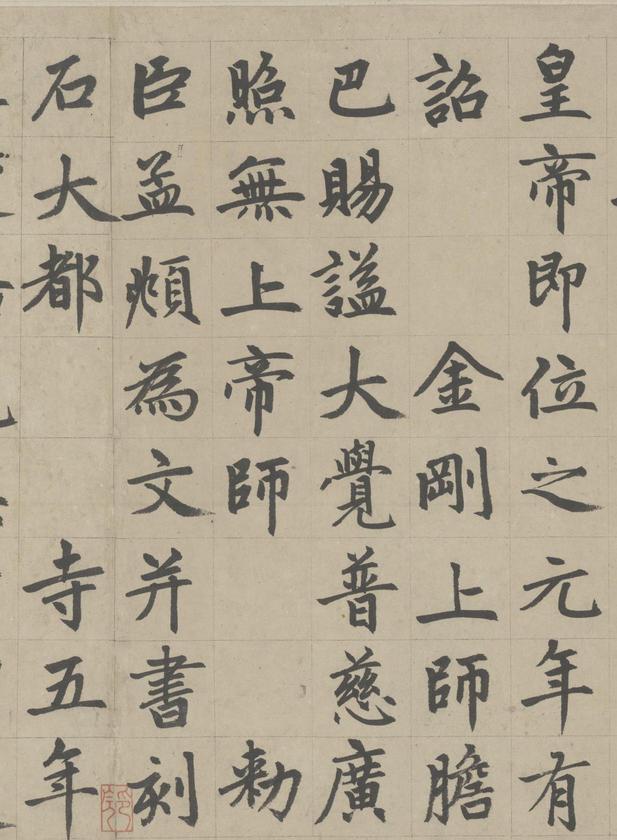 皇帝即位之元年有
詔 金剛上師膽
巴賜謚大覺普慈廣
照無上帝師 勑
臣孟頫為文并書刻
石大都 寺五年